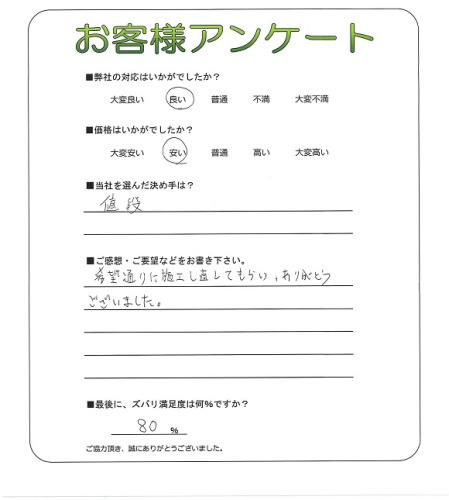 お客様アンケート
■弊社の対応はいかがでしたか?
大変良い 良い 普通 不満 大変不満
■価格はいかがでしたか?
大変安い 安い 普通 高い 大変高い
■当社を選んだ決め手は?
値段
■ご感想・ご要望などをお書き下さい。
希望通りに施工し直してもらい、ありがとう
ございました。
■最後に、ズバリ満足度は何%ですか?
80 %
ご協力頂き、誠にありがとうございました。